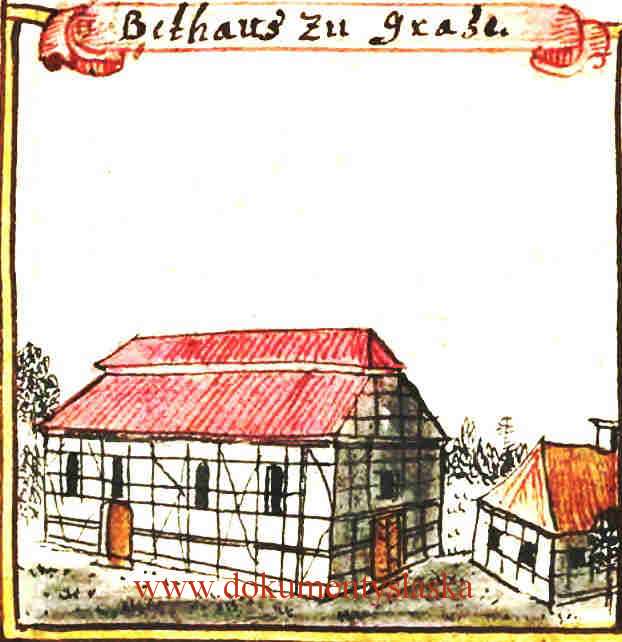 Bethaus zu Grase.
www.dokumentyslaska